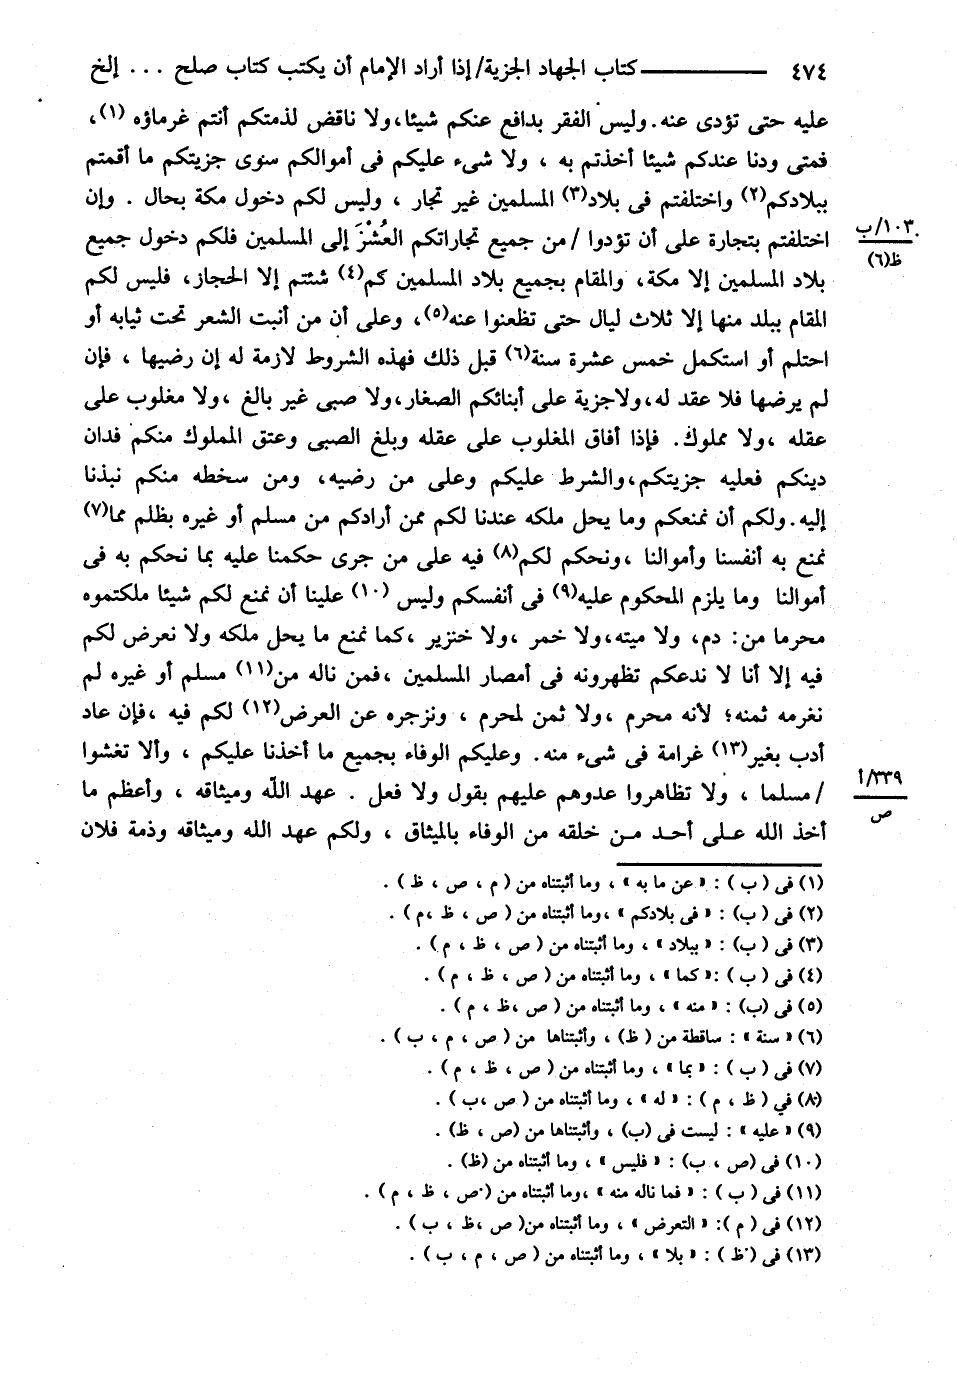 ٤٧٤ ــــــــــــــــ كتاب الجهاد الجزية/ إذا أراد الإمام أن يكتب كتاب صلح ... إلخ
عليه حتى تؤدى عنه. وليس الفقر بدافع عنكم شيئا، ولا ناقض لذمتكم أنتم غرماؤه (١)،
فمتى ودنا عندكم شيئا أخذتم به ، ولا شىء عليكم فى أموالكم سوى جزيتكم ما أقمتم
ببلادكم(٢) واختلفتم فى بلاد(٣) المسلمين غير تجار ، وليس لكم دخول مكة بحال . وإن
اختلفتم بتجارة على أن تؤدوا / من جميع تجاراتكم العُشْرَ إلى المسلمين فلكم دخول جميع
١٠٣/ب
ظ(٦)
بلاد المسلمين إلا مكة، والمقام بجميع بلاد المسلمين كم(٤) شئتم إلا الحجاز، فليس لكم
المقام ببلد منها إلا ثلاث ليال حتى تظعنوا عنه(٥)، وعلى أن من أنبت الشعر تحت ثيابه أو
احتلم أو استكمل خمس عشرة سنة(٦) قبل ذلك فهذه الشروط لازمة له إن رضيها ، فإن
لم يرضها فلا عقد له، ولاجزية على أبنائكم الصغار، ولا صبى غير بالغ ، ولا مغلوب على
عقله ، ولا مملوك. فإذا أفاق المغلوب على عقله وبلغ الصبى وعتق المملوك منكم فدان
دينكم فعليه جزيتكم، والشرط عليكم وعلى من رضيه، ومن سخطه منكم نبذنا
إليه. ولكم أن نمنعكم وما يحل ملكه عندنا لكم ممن أرادكم من مسلم أو غيره بظلم مما(٧)
نمنع به أنفسنا وأموالنا ، ونحكم لكم(٨) فيه على من جرى حكمنا عليه بما نحكم به فى
أموالنا وما يلزم المحكوم عليه(٩) فى أنفسكم وليس (١٠) علينا أن نمنع لكم شيئا ملكتموه
محرما من: دم، ولا ميته، ولا خمر ، ولا خنزير ، كما نمنع ما يحل ملكه ولا نعرض لكم
فيه إلا أنا لا ندعكم تظهرونه فى أمصار المسلمين ، فمن ناله من(١١) مسلم أو غيره لم
نغرمه ثمنه؛ لأنه محرم ، ولا ثمن لمحرم ، ونزجره عن العرض(١٢) لكم فيه ، فإن عاد
أدب بغير(١٣) غرامة فى شىء منه. وعليكم الوفاء بجميع ما أخذنا عليكم ، وألا تغشوا
/ مسلما ، ولا تظاهروا عدوهم عليهم بقول ولا فعل . عهد الله وميثاقه ، وأعظم ما
٣٣٩/أ
ص
أخذ الله على أحد من خلقه من الوفاء بالميثاق ، ولكم عهد الله وميثاقه وذمة فلان
(١) فى ( ب ) : « عن ما به » ، وما أثبتناه من ( م ، ص ، ظ ) .
(٢) فى ( ب) : « فى بلادكم » ، وما أثبتناه من ( ص ، ظ ،م ) .
(٣) فى ( ب) : « ببلاد » ، وما أثبتناه من ( ص ، ظ ، م ) .
(٤) فى ( ب ) :« كما » ، وما أثبتناه من ( ص ، ظ ، م ) .
(٥) فى (ب) : « منه » ، وما أثبتناه من ( ص ،ظ ، م ) .
(٦) « سنة » : ساقطة من ( ظ) ، وأثبتناها من ( ص ، م ، ب ) .
(٧) فى ( ب ) : « بما » ، وما أثبتناه من ( ص ، ظ ، م ) .
(٨) في ( ظ ، م ) : « له » ، وما أثبتناه من ( ص ،ب ) .
(٩) « عليه » : ليست فى (ب) ، وأثبتناها من (ص ، ظ) .
(١٠) فى (ص ، ب) : « فليس » ، وما أثبتناه من (ظ) .
(١١) فى ( ب ) : « فما ناله منه » ،وما أثبتناه من ( ص ، ظ ، م ) .
(١٢) فى ( م ): « التعرض » ، وما أثبتناه من( ص ،ظ ، ب ) .
(١٣) فى ( ظ ) : « بلا » ، وما أثبتناه من ( ص ، م ، ب ) .